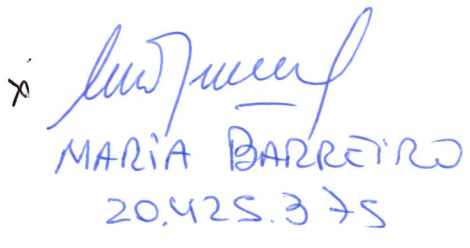 x
MARIA BARREIRO
20.425.375